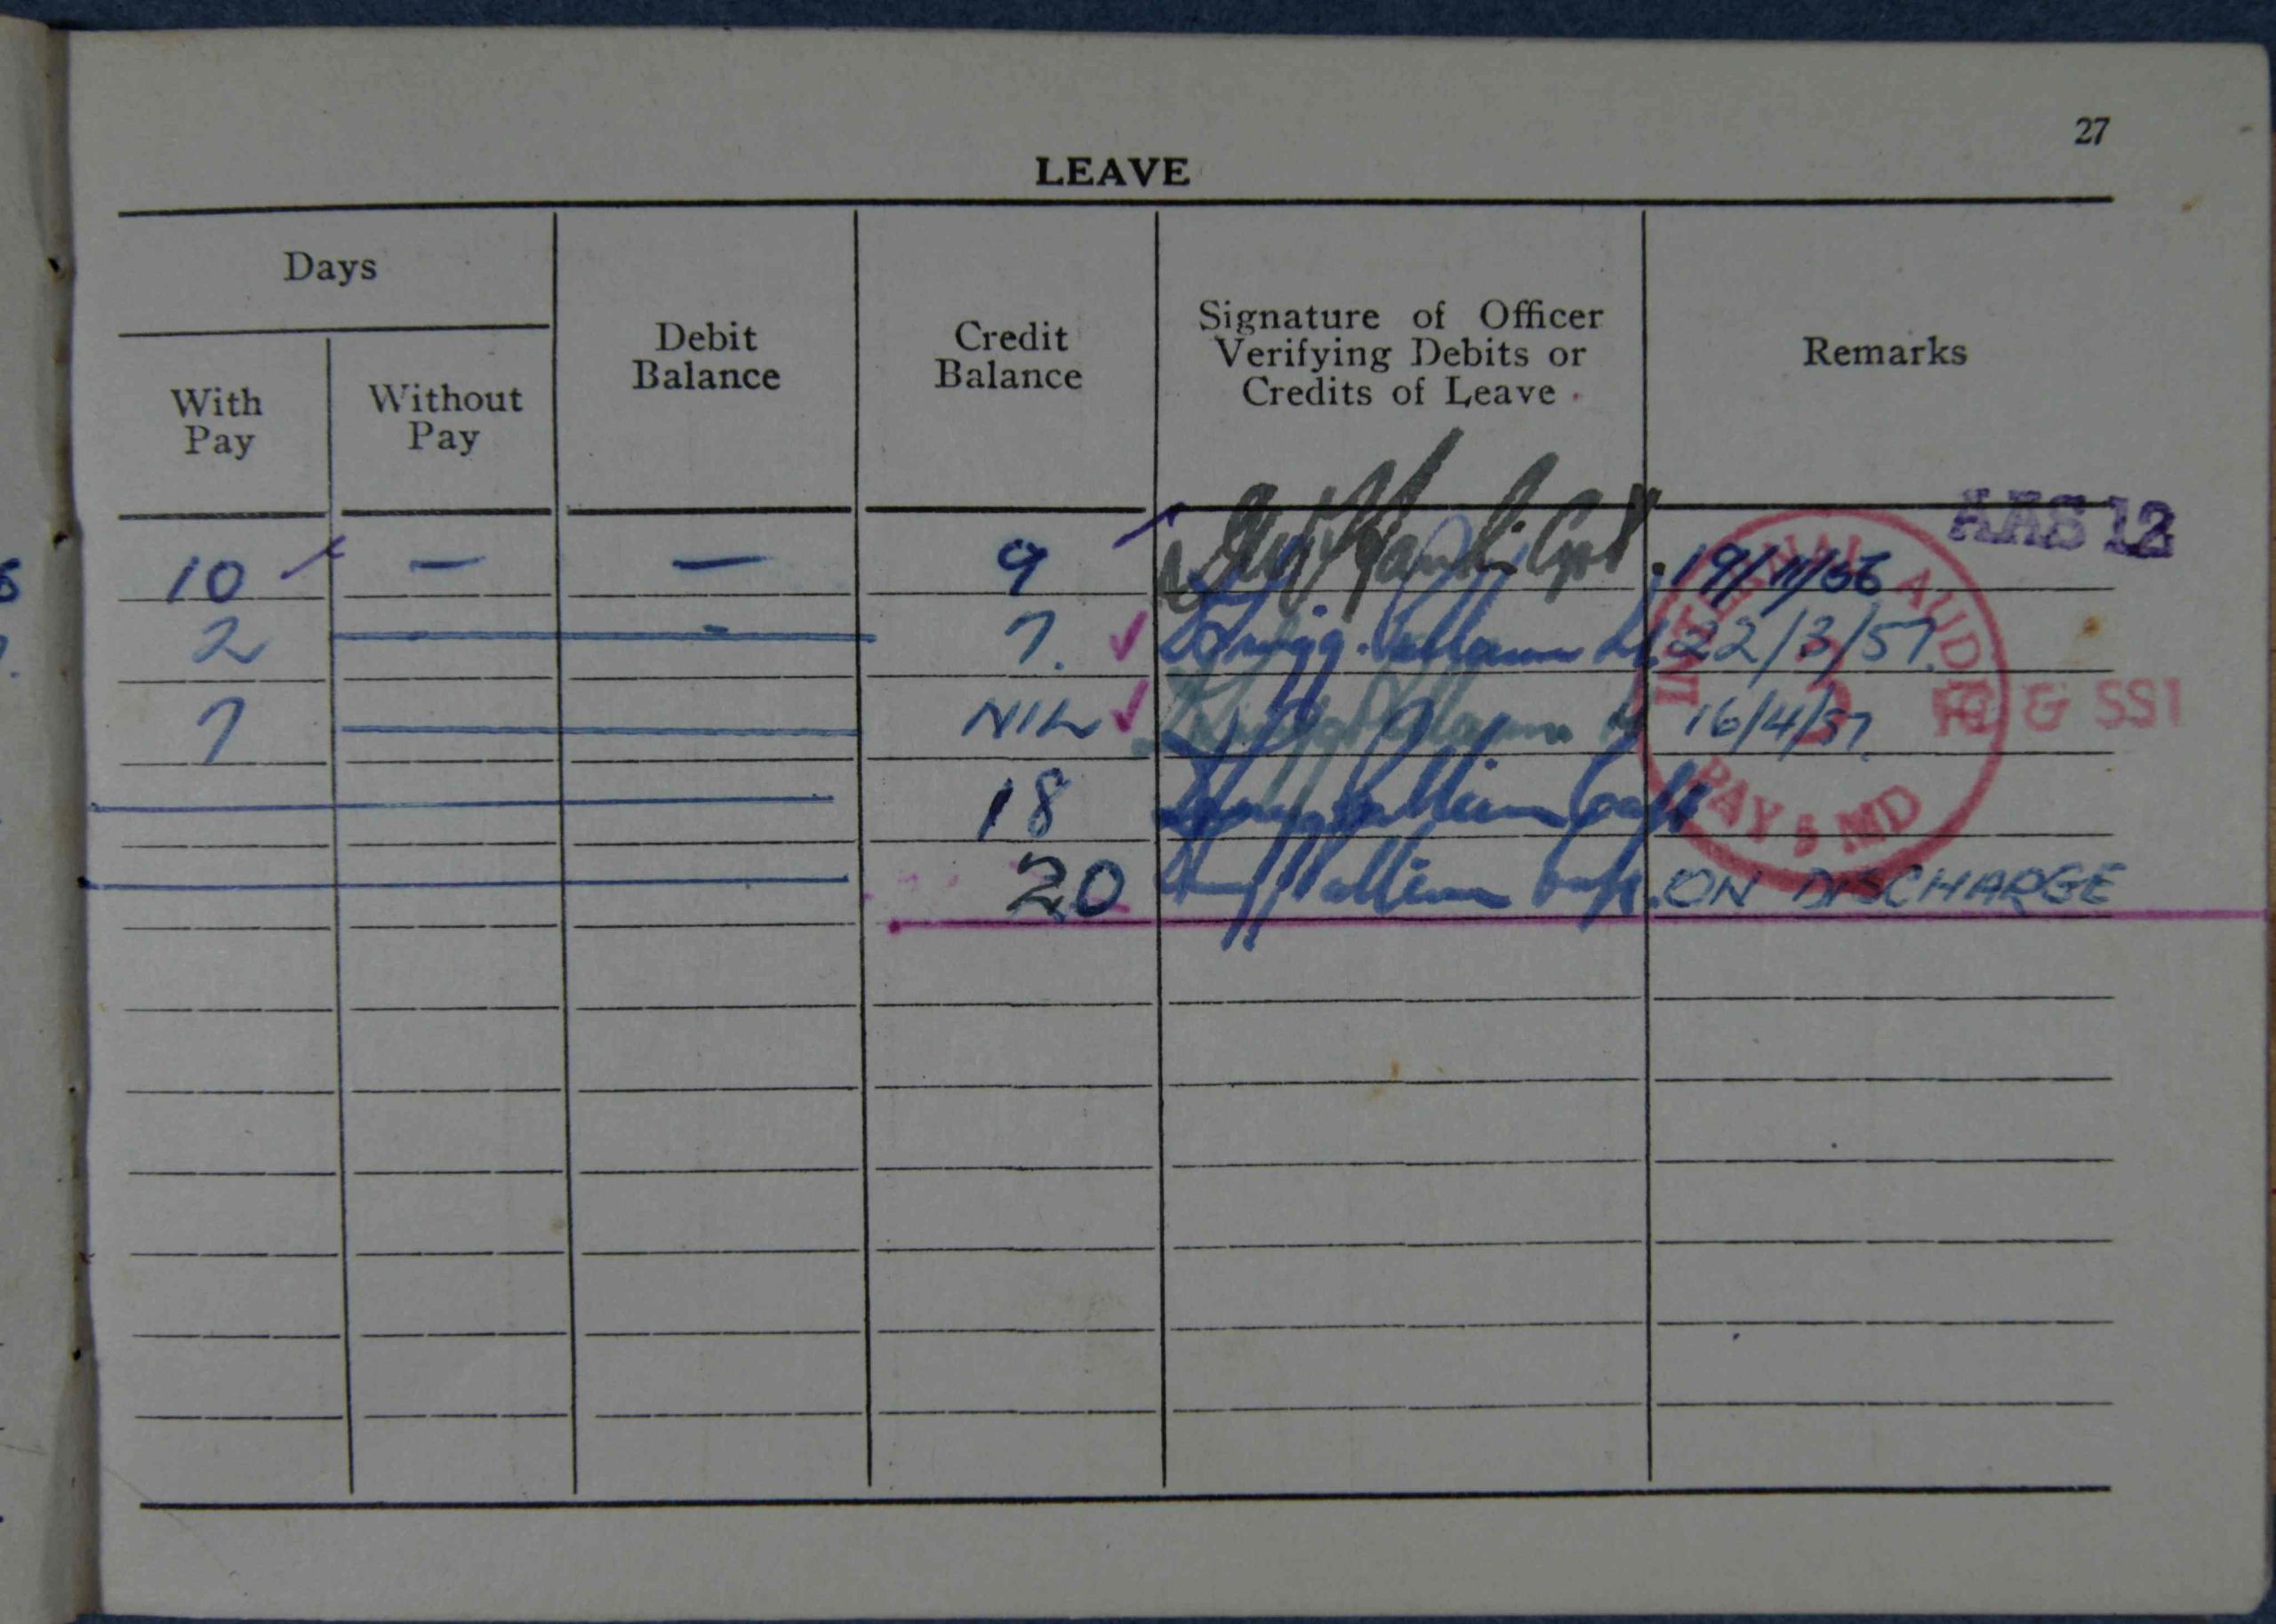 27
LEAVE
Days
With Pay
Without Pay
Debit Balance
Credit Balance
Signature of Officer Verifying Debits or Credits of Leave
Remarks
AAS 12
10 — — 9 19/11/56
2 7. 22/3/57.
7 NIL 16/4/57.
18
20 ON DISCHARGE
INTERNAL AUDIT
3
PAY 5 MD
& SSI